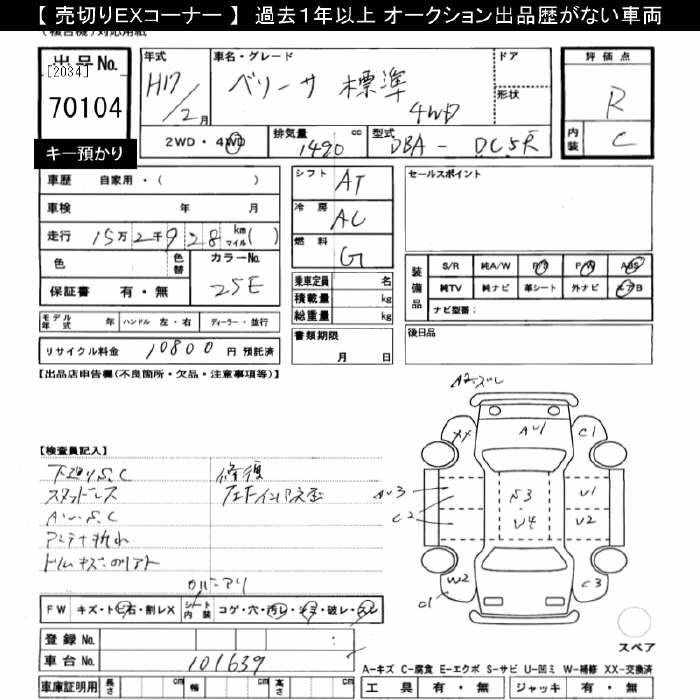 【 売切りEXコーナー 】 過去1年以上 オークション出品歴がない車両
出品No.
[2034]
70104
キー預かり
年式
H17/2月
車名・グレード
ベリーサ 標準 4WD
ドア
形状
評価点
R
内装
C
2WD・4WD
排気量
1490 cc
型式
DBA - DC5R
車歴 自家用・( )
車検 年 月
走行 15万2千928 km マイル( )
色
色替
カラーNo.
25E
保証書 有・無
シフト
AT
冷房
AC
燃料
G
乗車定員 名
積載量 kg
総重量 kg
書類期限
月 日
セールスポイント
装備品
S/R 純A/W P/S P/W ABS
純TV 純ナビ 革シート 外ナビ エアB
ナビ型番:
後日品
モデル年式 年 ハンドル 左・右 ディーラー・並行
リサイクル料金 10800 円 預託済
【出品店申告欄(不良箇所・欠品・注意事項等)】
【検査員記入】
下廻りS.C
修復
スタッドレス
AW.S.C
アンテナ折れ
A2ズレ
XX
AU1
C1
AW3
C2
S3
U4
U1
U2
W2
C1
C3
スペア
FW キズ・トビ石・割レX
シート内装 コゲ・穴・汚レ・キズ・破レ・スレ
登録No.
車台No. 101639
車庫証明用 長さ cm 幅 cm 高さ cm
A-キズ C-腐食 E-エクボ S-サビ U-凹ミ W-補修 XX-交換済
工具 有・無 ジャッキ 有・無